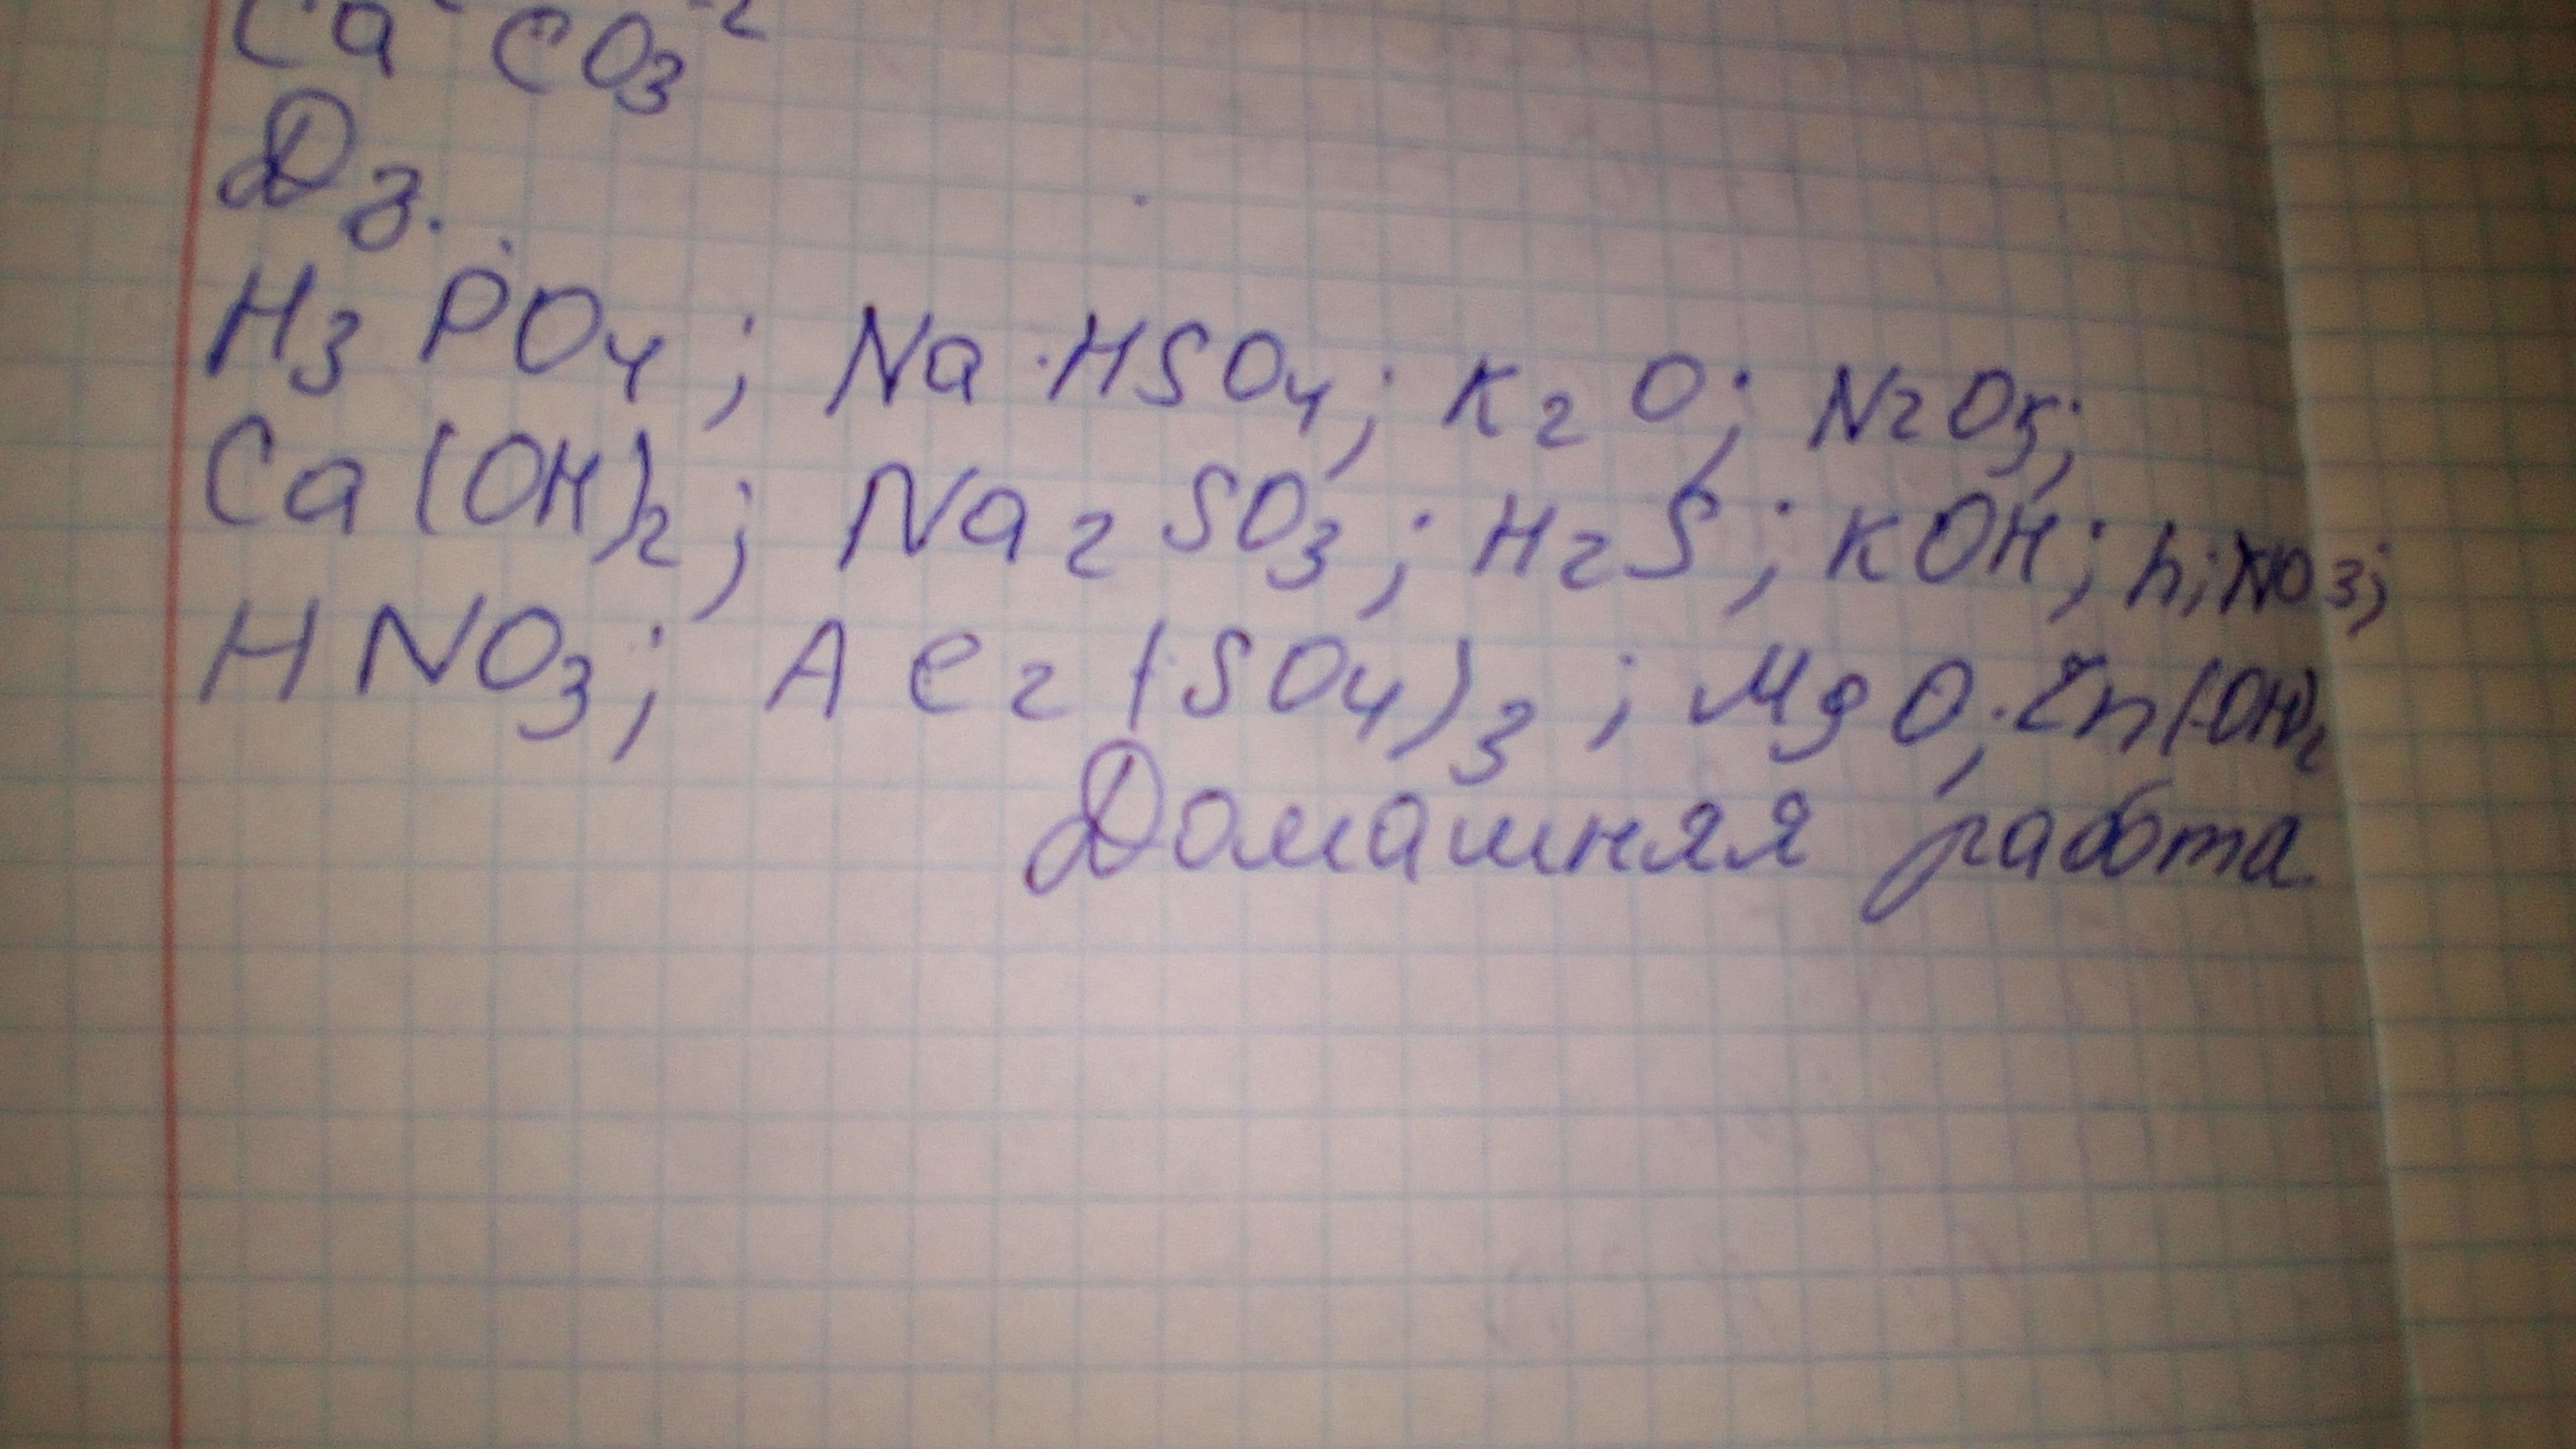 Ca CO₃⁻²
Дз.
H₃PO₄; NaHSO₄; K₂O; N₂O₅;
Ca(OH)₂; Na₂SO₃; H₂S; KOH; LiNO₃;
HNO₃; Al₂(SO₄)₃; MgO; Zn(OH)₂
Домашняя работа